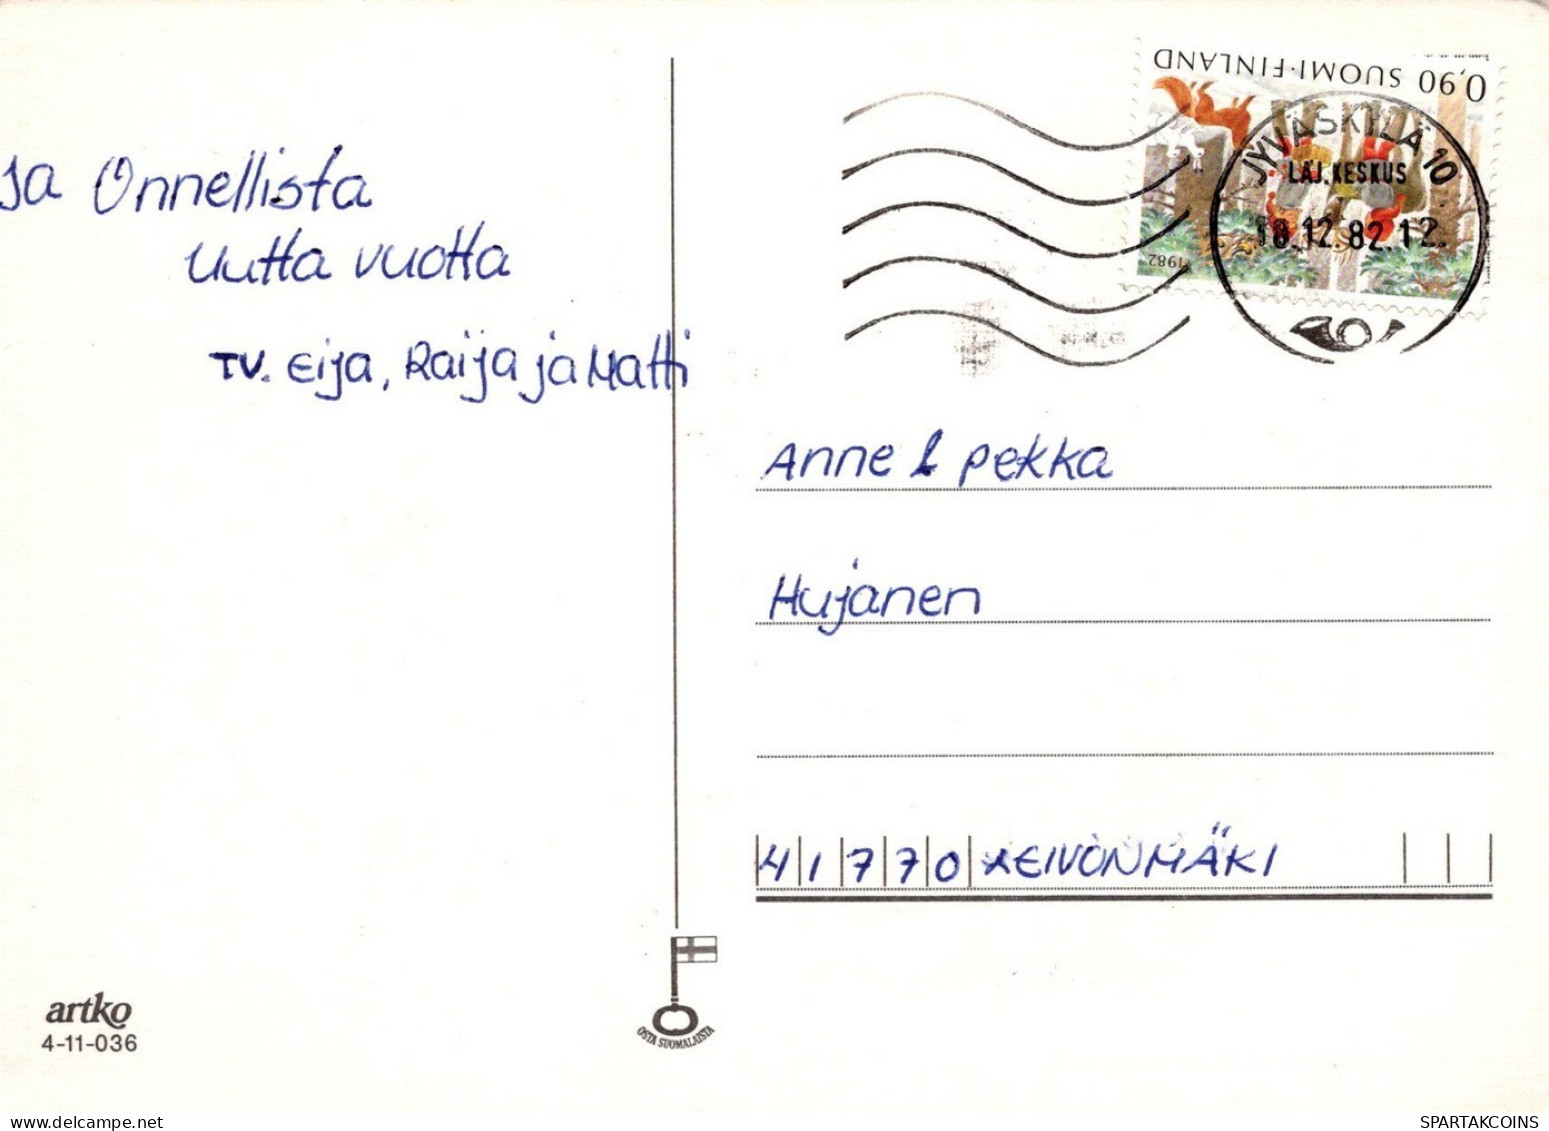 ja Onnellista
uutta vuotta
TV. Eija, Raija ja Matti
0,90 SUOMI·FINLAND
1982
JYVÄSKYLÄ 10
LAJ.KESKUS
18.12.82.12.
Anne & Pekka
Hujanen
41770 LEIVONMÄKI
artko
4-11-036
OSTA SUOMALAISTA
www.delcampe.net
SPARTAKCOINS